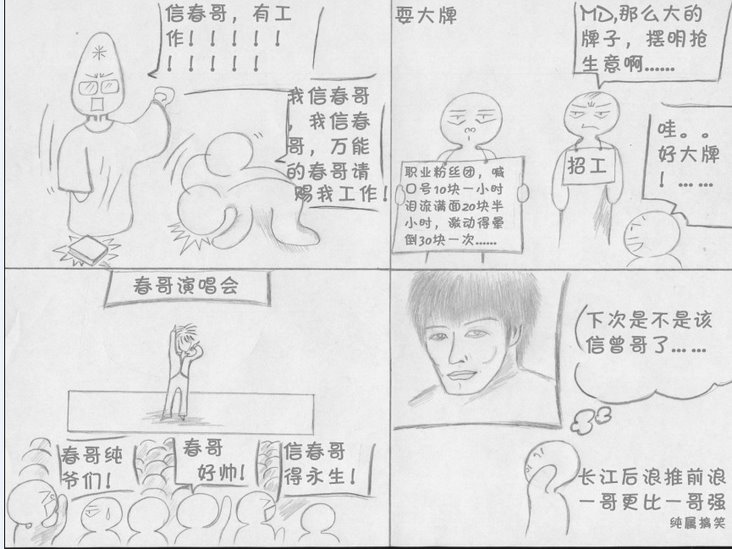 信春哥，有工
作！！！！！
！！！！！
我信春哥
，我信春
哥，万能
的春哥请
赐我工作！
耍大牌
MD,那么大的
牌子，摆明抢
生意啊……
职业粉丝团，喊
口号10块一小时
泪流满面20块半
小时，激动得晕
倒30块一次……
招工
哇。。
好大牌
！……
春哥演唱会
春哥纯
爷们！
春哥
好帅！
信春哥
得永生！
下次是不是该
信曾哥了……
长江后浪推前浪
一哥更比一哥强
纯属搞笑